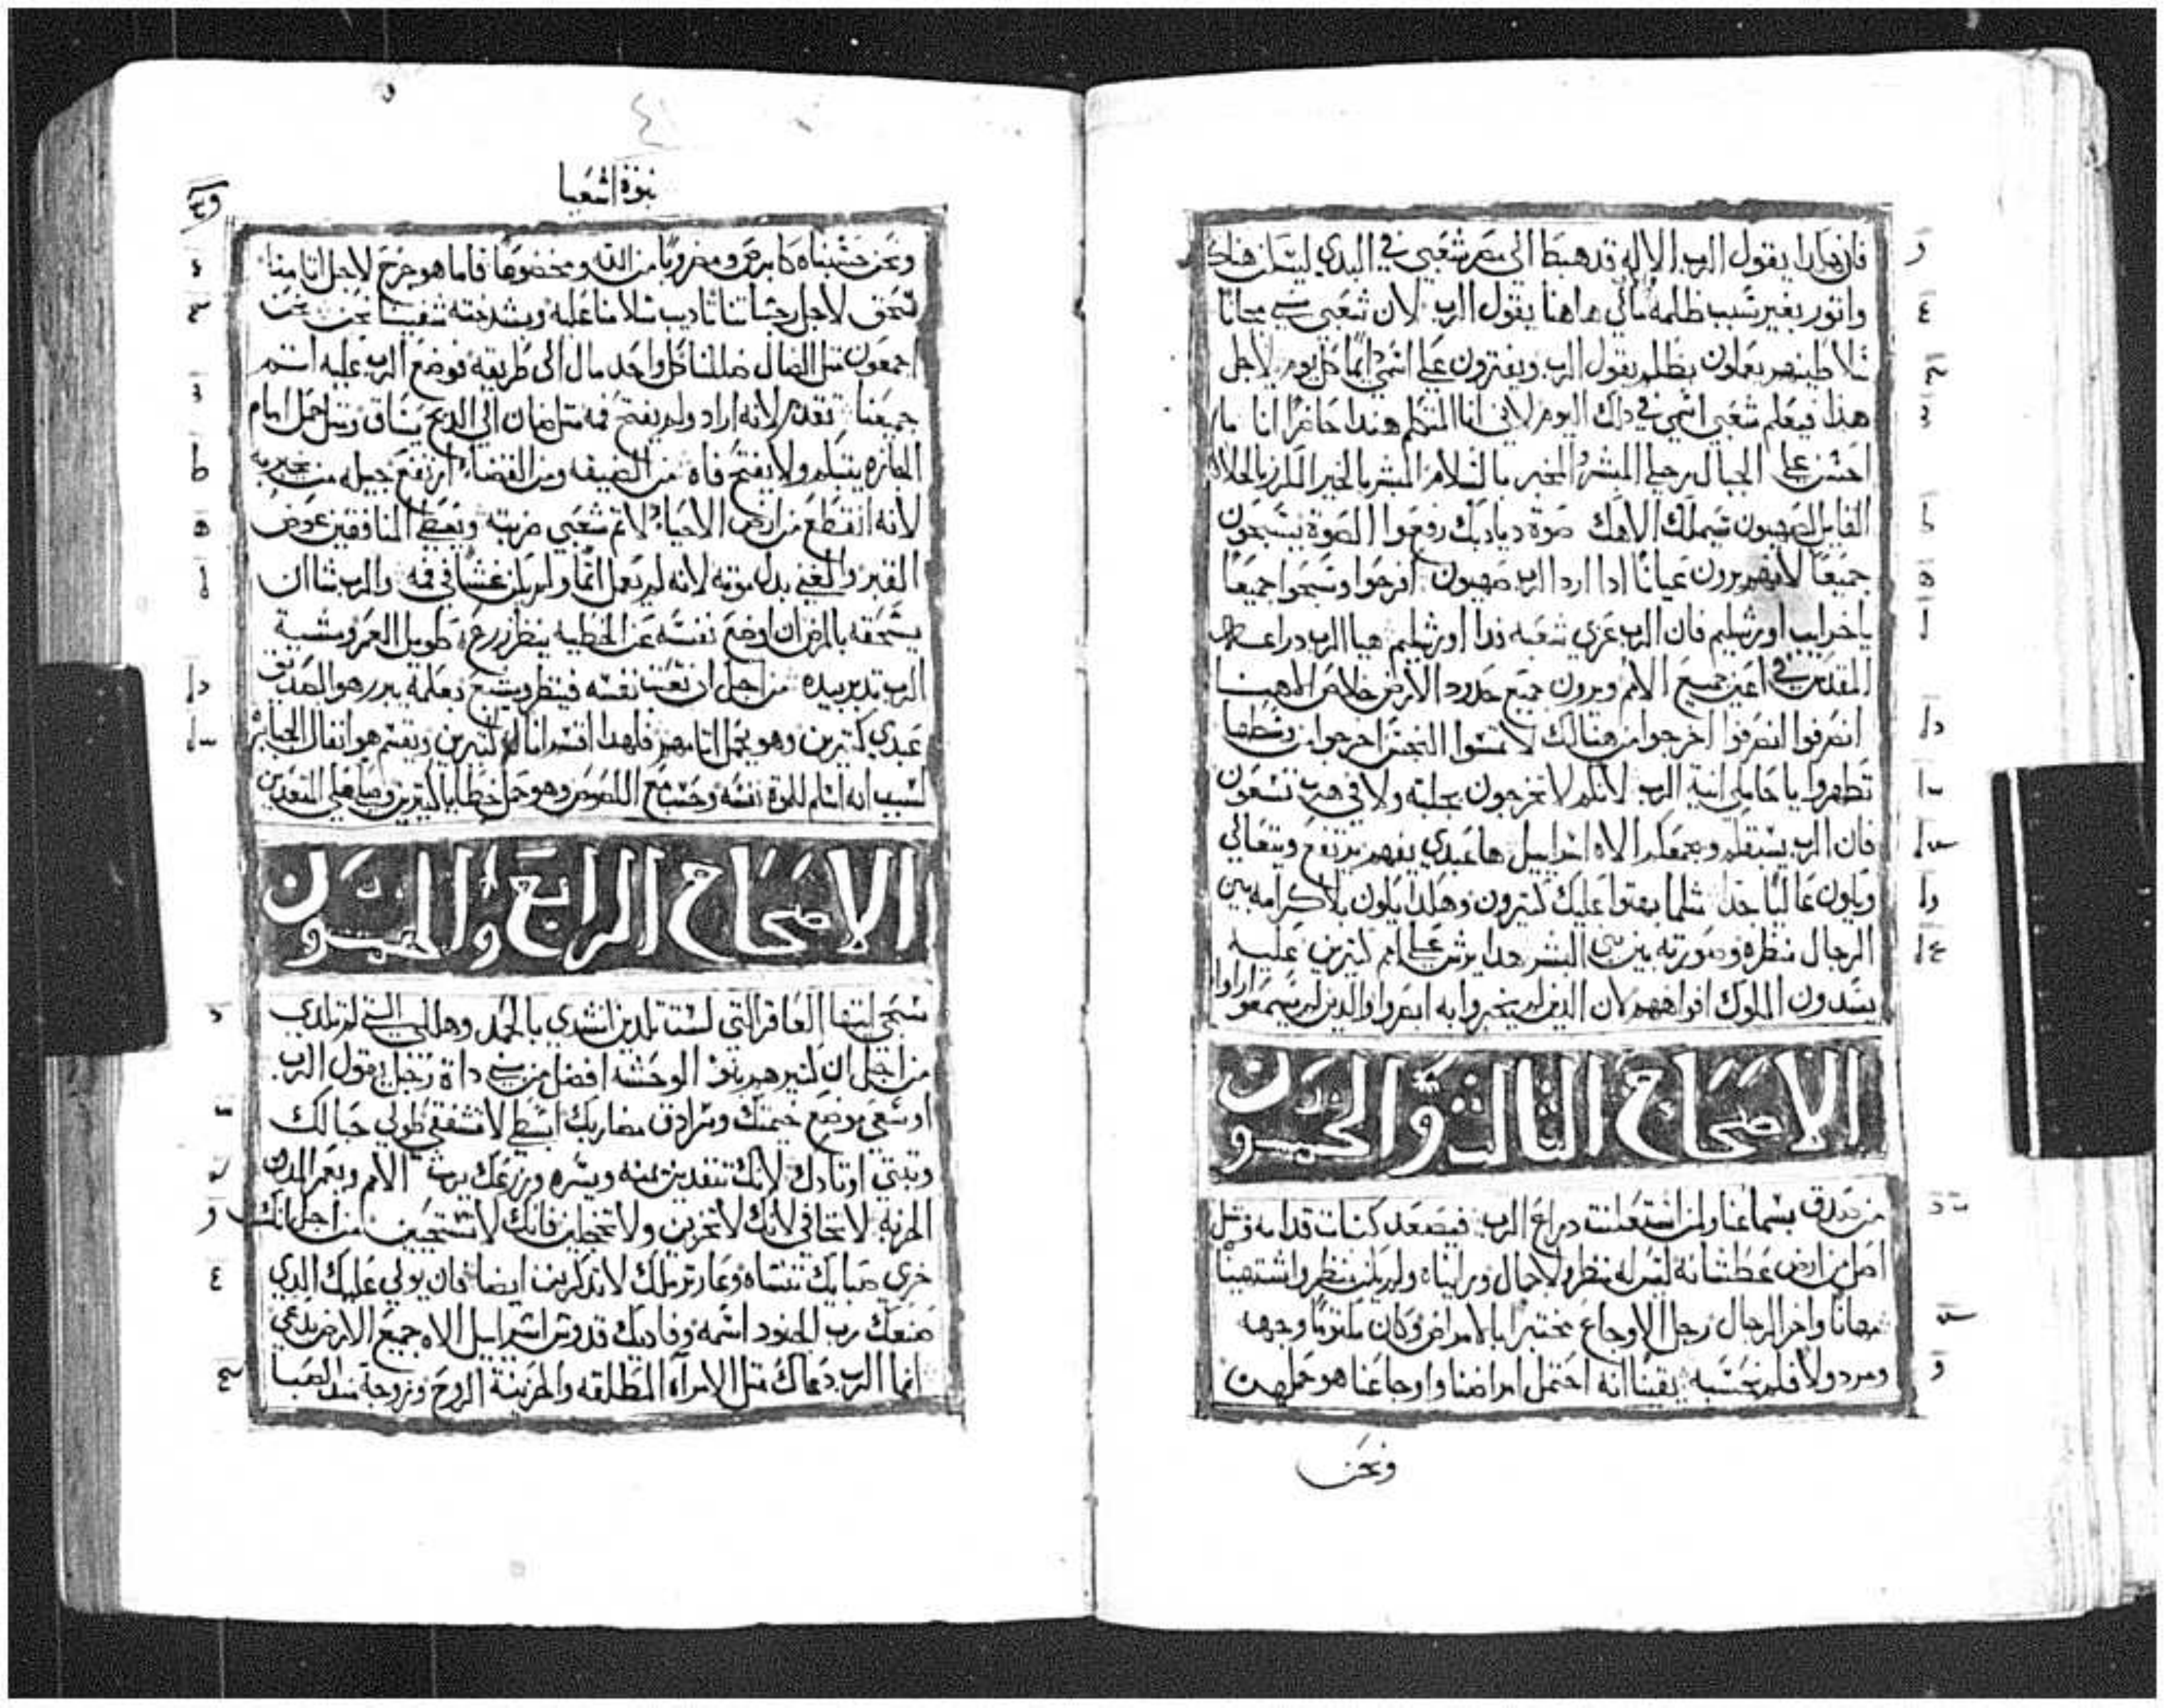 فان هذا يقول الرب الاله قد هبط الى مصر شعبي في البدي ليسكن هناك
واتور بغير سبب ظلمه مالي هاهنا يقول الرب لان شعبي سبي مجانا
سلاطينهم يعملون بظلم يقول الرب ويفترون على اسمي دايما كل يوم لاجل
هذا فيعلم شعبي اسمي في داك اليوم لاني انا المتكلم هندا حاضرا انا ما
احسن على الجبال رجلي المبشر المخبر بالسلام المبشر بالخير المكرز بالخلاص
القايل لصهيون سيملك الاهك صوة ديادبك رفعوا الصوة يسبحون
جميعا لانهم يرون عيانا ادا ارد الرب صهيون افرحوا وسبحوا جميعا
ياخرايب اورشليم فان الرب عزي شعبه فدا اورشليم هيا الرب دراعه
المقدس في اعين جميع الامم ويرون جميع حدود الارض خلاص الاهنا
انصرفوا انصرفوا اخرجوا من هنالك لا تمسوا النجس اخرجوا من وسطها
تطهروا يا حاملي انية الرب لانكم لا تخرجون بعجلة ولا في هرب تسعون
فان الرب يسبقكم ويجمعكم الاه اسراييل ها عبدي يفهم يرتفع ويتعالي
ويكون عاليا جدا مثلما بهتوا عليك كتيرون وهكدا يكون بلا كرامه بين
الرجال منظره وصورته بين بني البشر هدا يرش على امم كتيرين عليه
يسدون الملوك افواههم لان الدين لم يخبروا به ابصروا والدين لم يسمعوا اراوا
الاصحاح الثالث والخمسون
من صدق بسماعنا ولمن استعلنت دراع الرب فيصعد كنبات قدامه ومثل
اصل من ارض عطشانه ليس له منظر ولا جمال ورايناه ولم يكن منظر واشتهينا
مهانا واخر الرجال رجل الاوجاع مختبرا بالامراض وكان مكتوما وجهه
ومردولا فلم نحسبه يقينا انه احتمل امراضنا واوجاعنا هو حملهن
ونحن
نبوة اشعيا
ونحن حسبناه كابرص ومضروبا من الله ومخضوعا فاما هو جرح لاجل اتامنا
تسحق لاجل رجساتنا تاديب سلامنا عليه وبشدخته شفينا نحن
اجمعون متل الضال ضللنا كل واحد مال الى طريقه فوضع الرب عليه اتم
جميعنا تقدم لانه اراد ولم يفتح فمه متل ضان الي الدبح يساق ومتل حمل امام
الجازه يتبكم ولا يفتح فاه من الضيقه ومن القضاء ارتفع جيله من يخبر به
لانه انقطع من ارض الاحياء لاتم شعبي ضربته ويعطي المنافقين عوض
القبر والغني بدل موته لانه لم يعمل اتما ولم يكن غشا في فمه والرب شا ان
يسحقه بالمرض ان اوضع نفسه عن الخطيه ينظر زرع طويل العمر ومشية
الرب تدبر بيده من اجل ان تعبت نفسه فينظر ويشبع بعلمه يبرر هو الصديق
عبدي كتيرين وهو يحمل اتامهم فلهدا اقسم انا له كتيرين ويقسم هو انفال الجبابر
لسبب انه اسلم للموة نفسه وحسب مع اللصوص وهو حمل خطايا كتيرين وصلى على المتعدين
الاصحاح الرابع والخمسون
سبحي ايتها العاقر التي لست تلدين انشدي بالحمد وهللي التي لم تلدي
من اجل ان كتير هم بنو الوحشه افضل من بني داة رجل يقول الرب
اوسعي موضع خيمتك وسرادق مضاربك ابسطي لا تشفقي طولي حبالك
وتبتي اوتادك لانك تنفدين يمنه ويسره وزرعك يرث الامم ويعمر المدن
الخربه لا تخافي لانك لا تخزين ولا تخجلين فانك لا تستحيين من اجل انك
خزي صبايك تنساه وعار ترملك لا تدكرين ايضا فان يولي عليك الدي
صنعك رب الجنود اسمه وفاديك قدوس اسراييل الاه جميع الارض يدعي
انما الرب دعاك متل الامراه المطلقه والحزينة الروح وزوجة مند الصبا